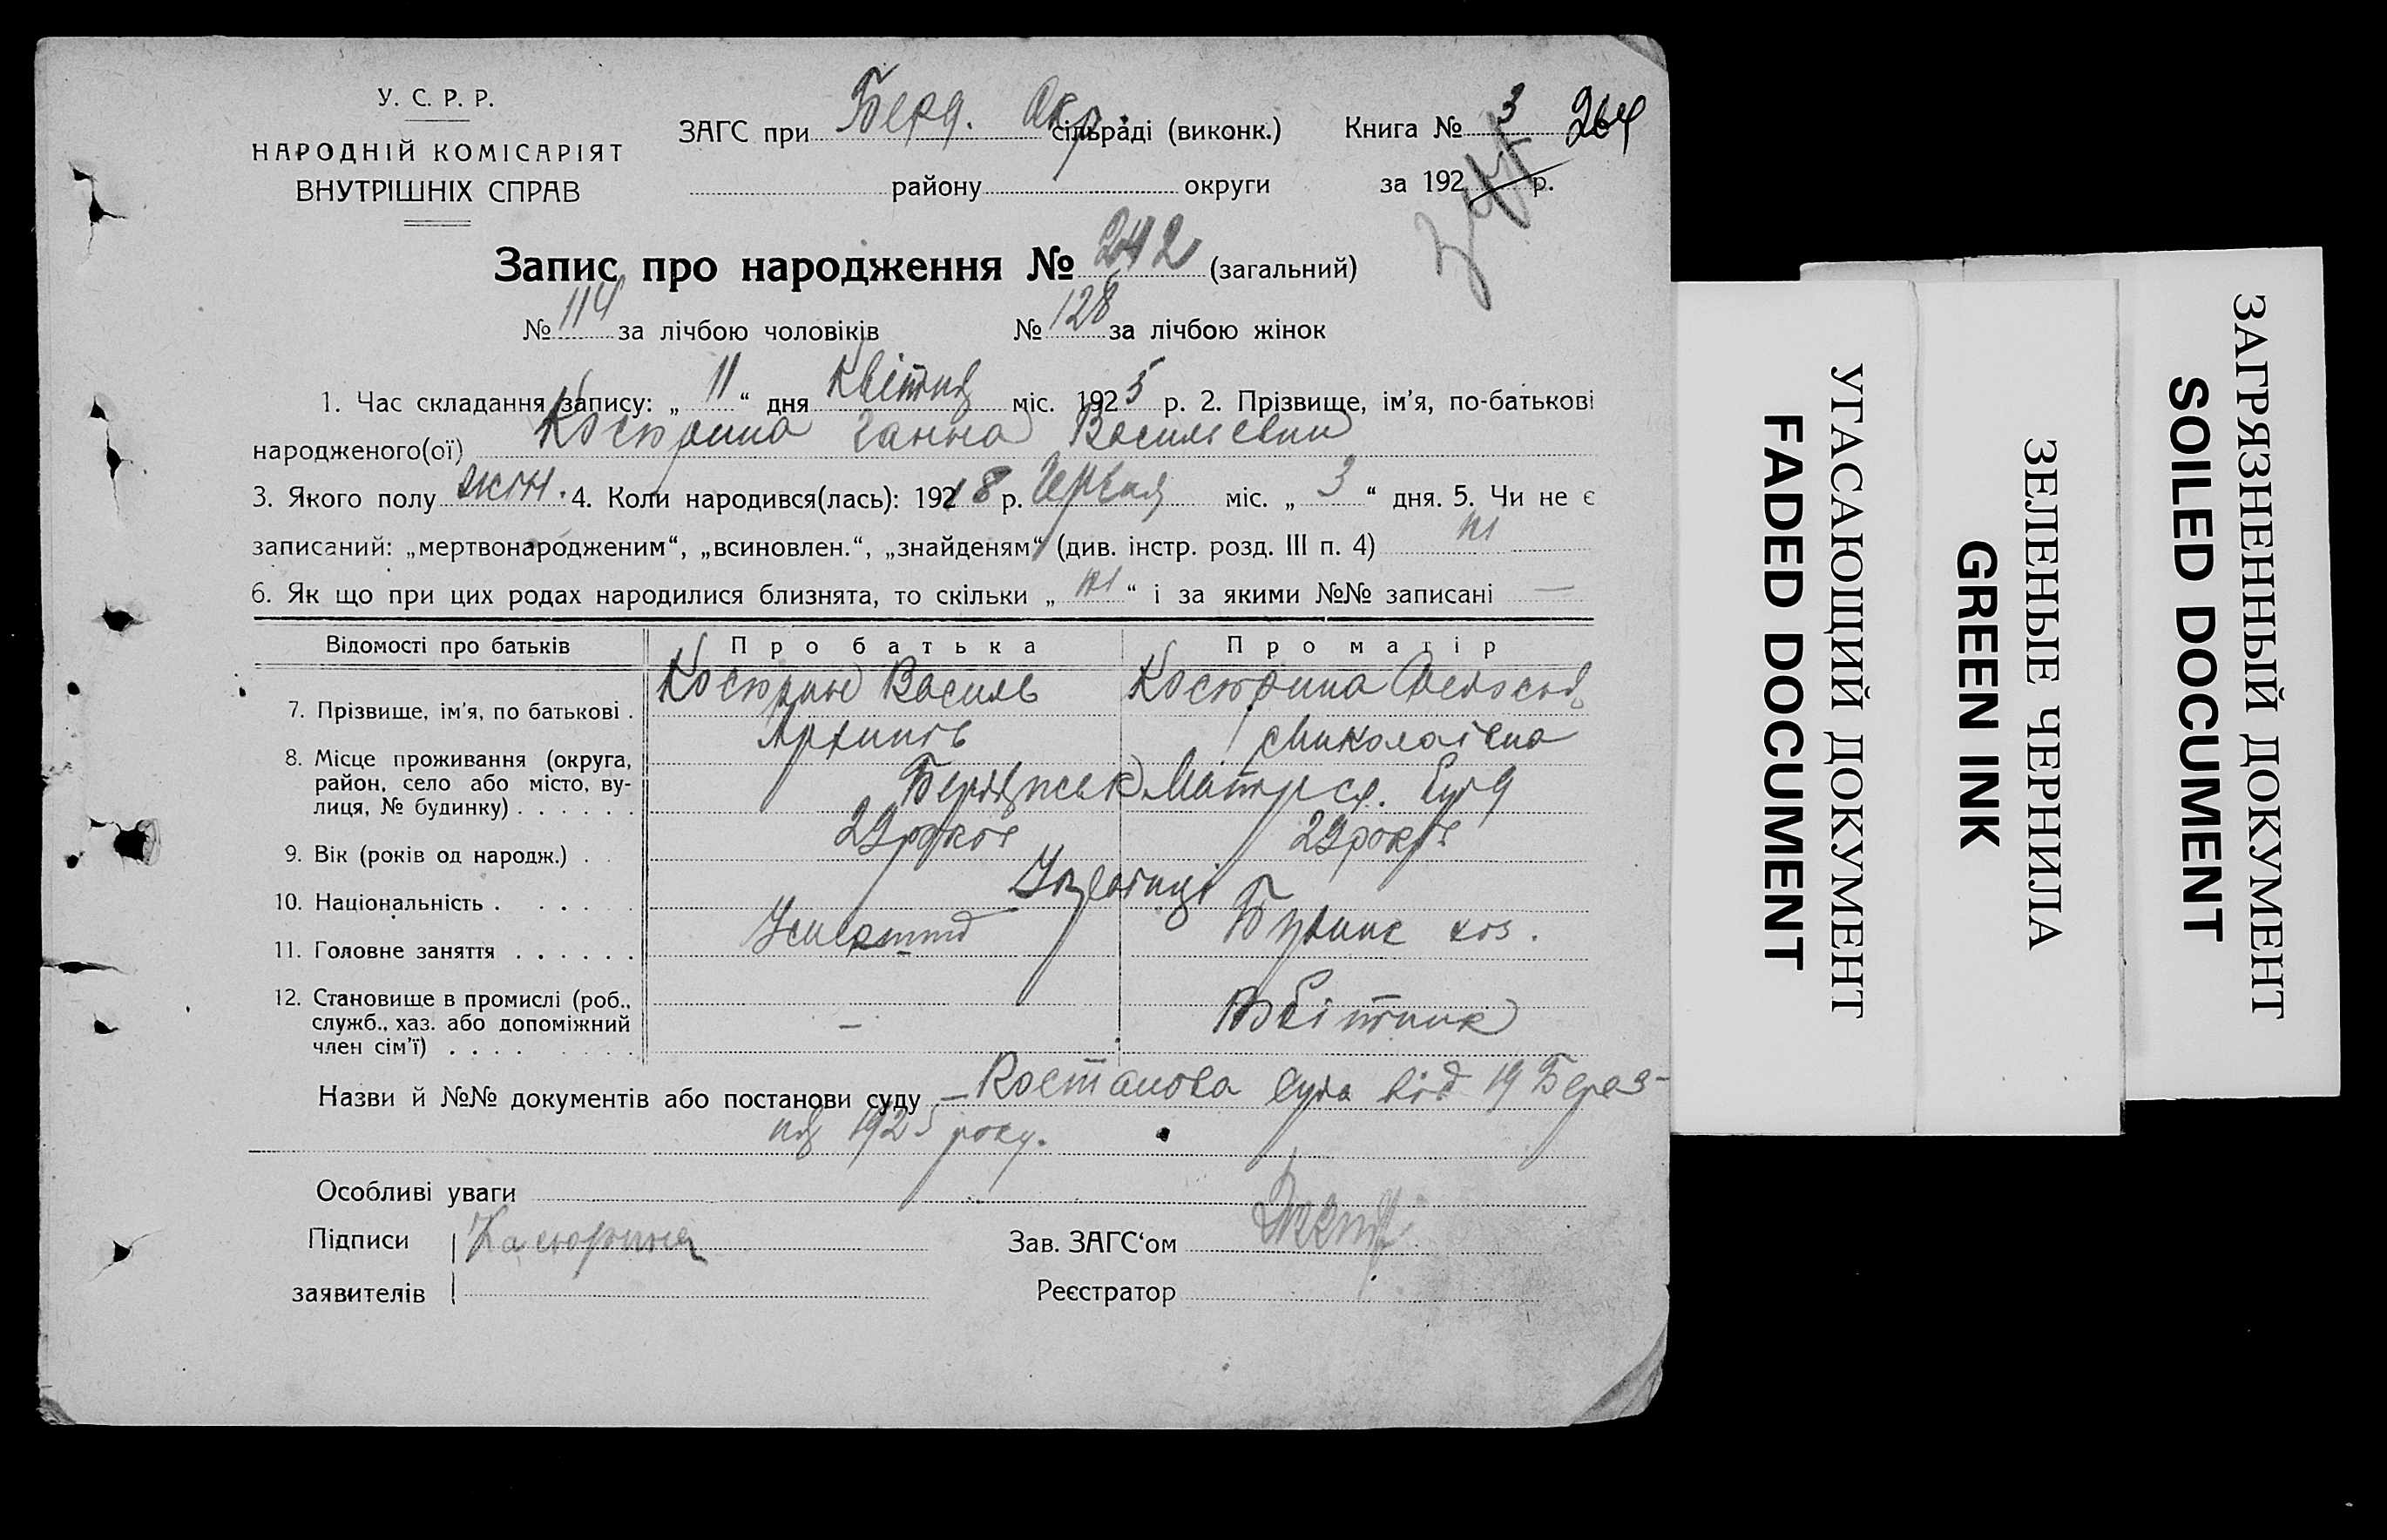 У. С. Р. Р.
НАРОДНІЙ КОМІСАРІЯТ
ВНУТРІШНІХ СПРАВ
ЗАГС при Берд. Окр. сільраді (виконк.) Книга № 3 264
району округи за 192 р.
Запис про народження № 242 (загальний)
№ 114 за лічбою чоловіків № 128 за лічбою жінок
1. Час складання запису: „ 11 “ дня Квітня міс. 1925 р. 2. Прізвище, ім’я, по-батькові
народженого(ої) Кострина Ганна Васильевни
3. Якого полу жін. 4. Коли народився(лась): 1918 р. Червня міс. „ 3 “ дня. 5. Чи не є
записаний: „мертвонародженим“, „всиновлен.“, „знайденям“ (див. інстр. розд. III п. 4) ні
6. Як що при цих родах народилися близнята, то скільки „ ні “ і за якими №№ записані —
Відомості про батьків Про батька Про матір
7. Прізвище, ім’я, по батькові . Кострин Василь Кострина
Архипів Миколаївна
8. Місце проживання (округа,
район, село або місто, ву-
лиця, № будинку) . . . . . . Бердянськ
9. Вік (років од народж.) . . 29 років 29 років
10. Національність . . . .
11. Головне заняття . . . . . .
12. Становище в промислі (роб.,
служб., хаз. або допоміжний
член сім’ї) . . . . —
Назви й №№ документів або постанови суду — Постанова суда від 19 Берез-
ня 1925 року.
Особливі уваги
Підписи Зав. ЗАГС‘ом
заявителів Реєстратор
УГАСАЮЩИЙ ДОКУМЕНТ
FADED DOCUMENT
ЗЕЛЕНЫЕ ЧЕРНИЛА
GREEN INK
ЗАГРЯЗНЕННЫЙ ДОКУМЕНТ
SOILED DOCUMENT